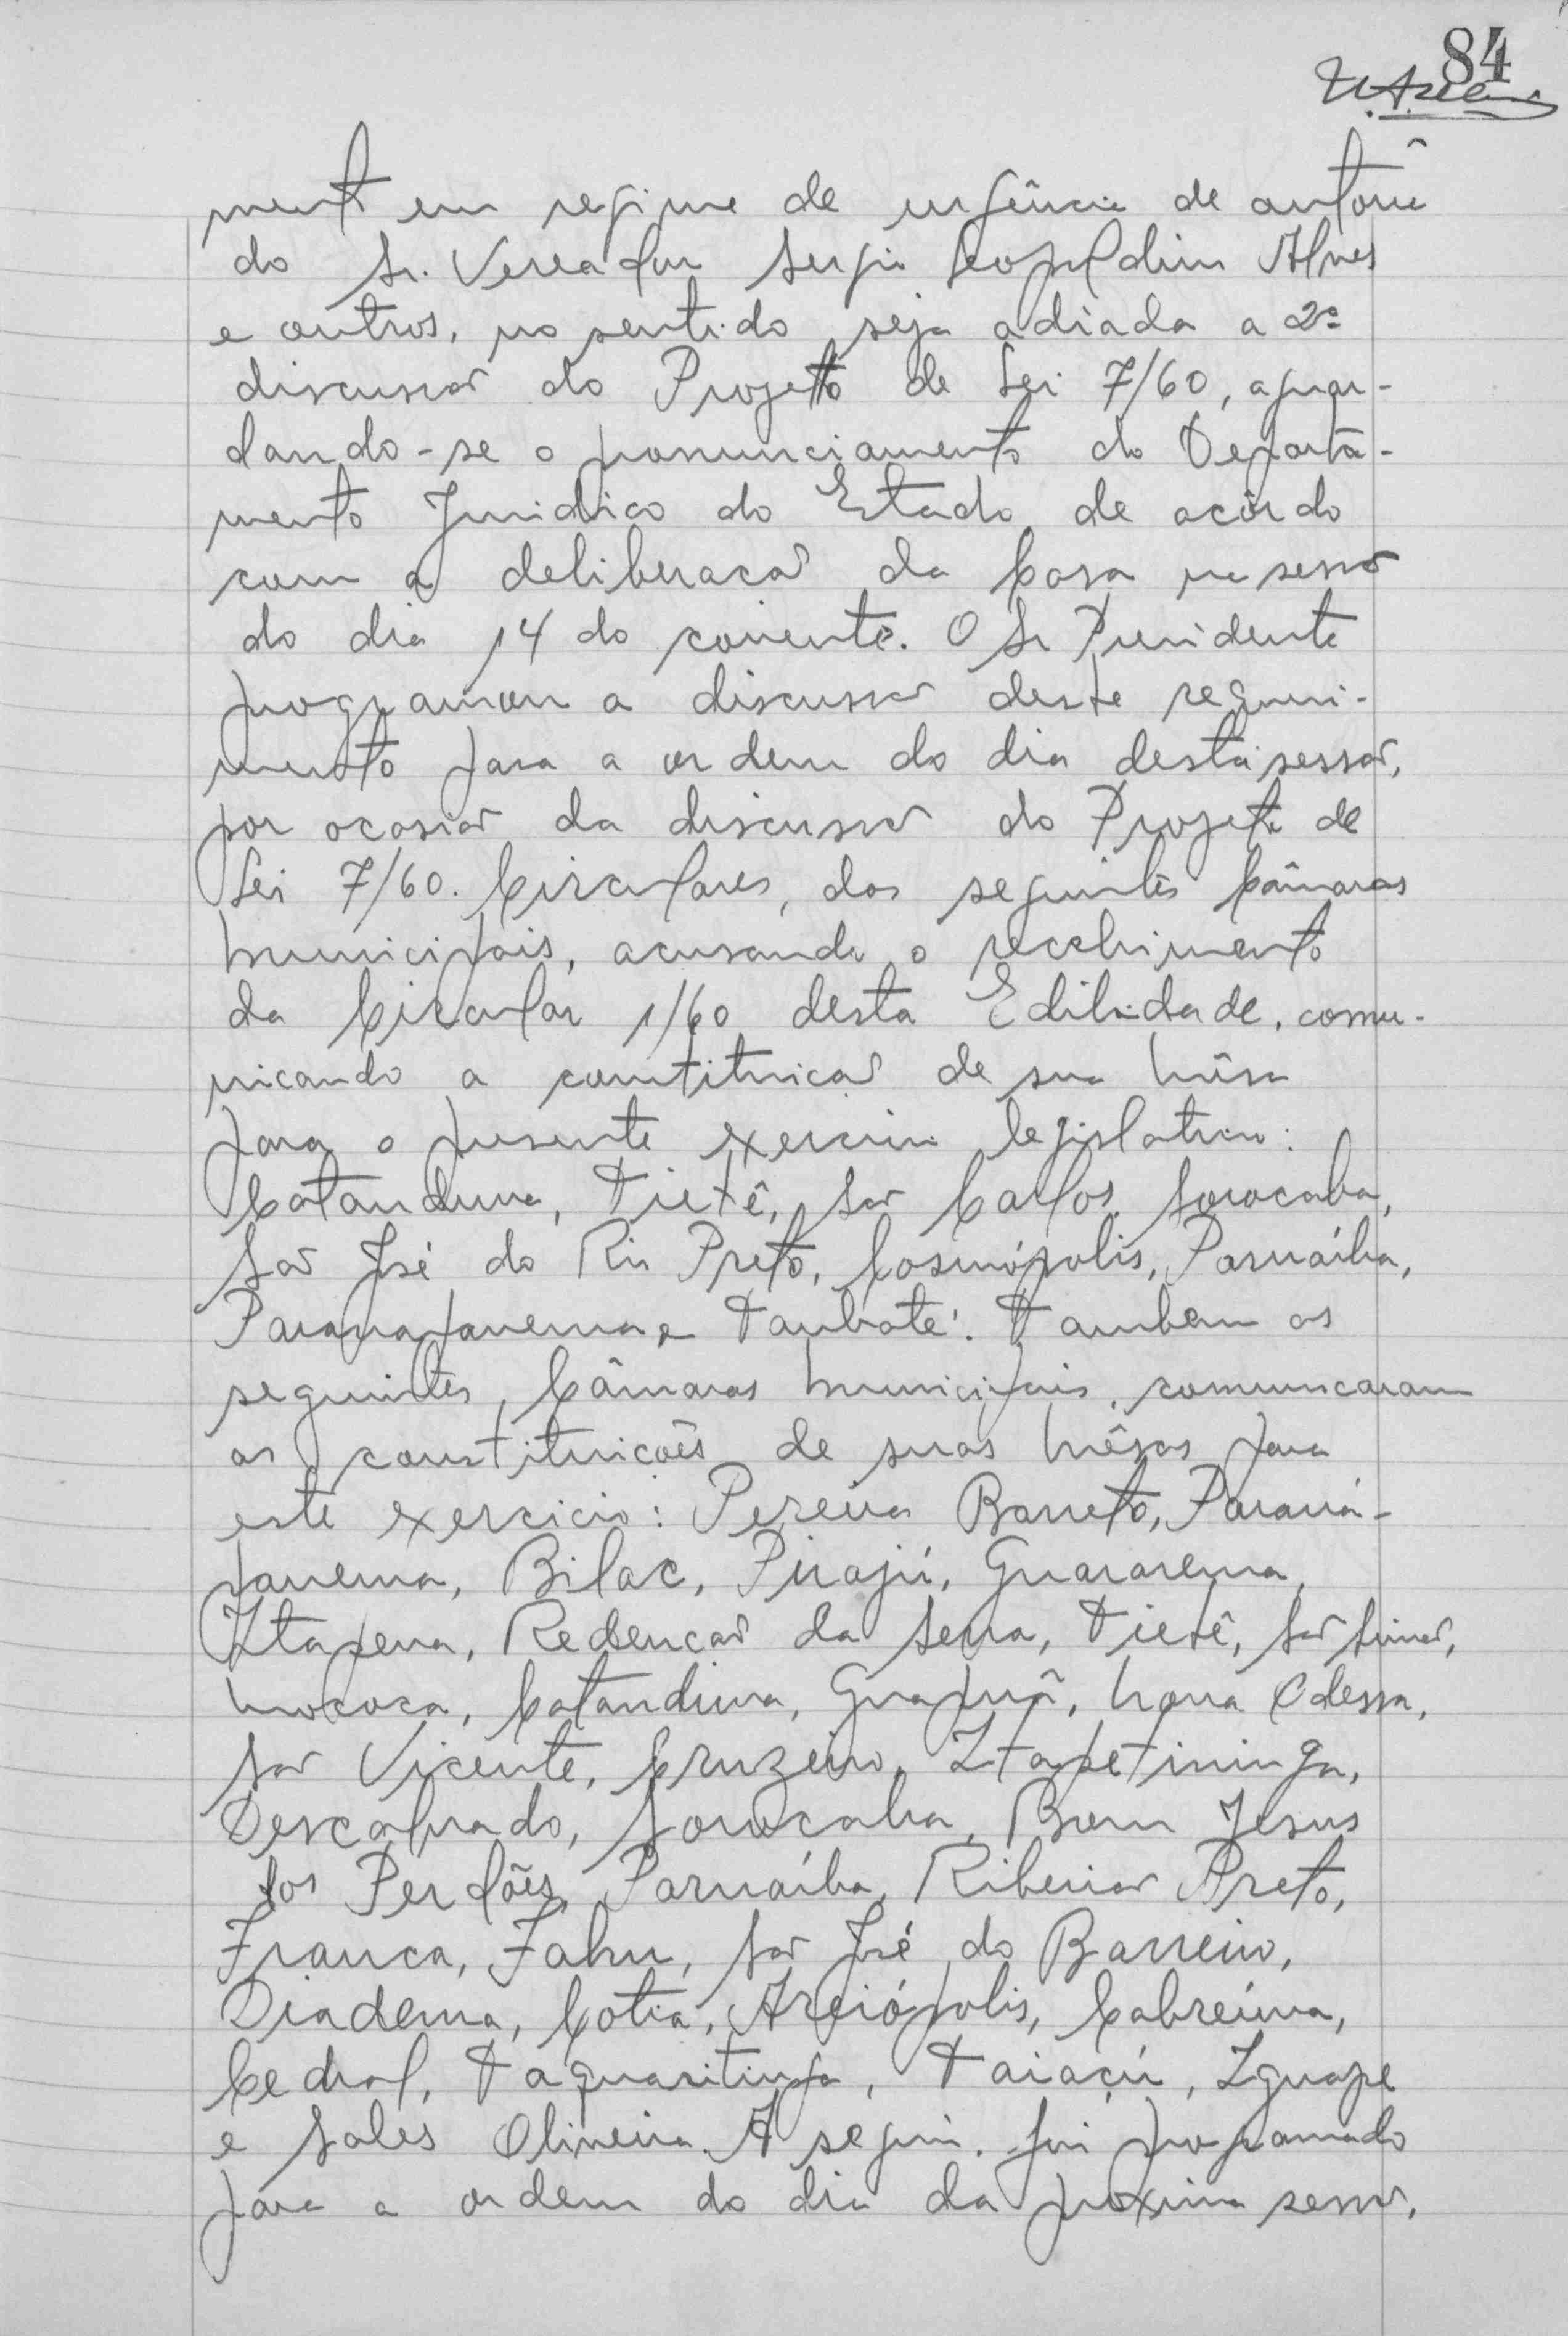 84
mento em regime de urgência de autoria
do Sr. Vereador Sergio Leopoldino Alves
e outros, no sentido seja adiada a 2ª
discussão do Projeto de Lei 7/60, aguar-
dando-se o pronunciamento do Departa-
mento Juridico do Estado, de acôrdo
com a deliberacão da Casa na sessão
do dia 14 do corrente. O Sr Presidente
programou a discussão deste requeri-
mento para a ordem do dia desta sessão,
por ocasião da discussão do Projeto de
Lei 7/60. Circulares, das seguintes Câmaras
Municipais, acusando o recebimento
da Circular 1/60 desta Edilidade, comu-
nicando a constituicão de sua Mêsa
para o presente exercicio legislativo:
Catanduva, Tietê, São Carlos, Sorocaba,
São José do Rio Preto, Cosmópolis, Parnaíba,
Paranapanema e Taubaté. Tambem as
seguintes, Câmaras Municipais, comunicaram
as constituicões de suas Mêsas para
este exercicio: Pereira Barreto, Paraná-
panema, Bilac, Pirajú, Guararema,
Itapeva, Redencão da Serra, Tietê, São Simão,
Mococa, Catanduva, Guapuã, Nova Odessa,
São Vicente, Cruzeiro, Itapetininga,
Descalvado, Sorocaba, Bom Jesus
dos Perdões, Parnaíba, Ribeirão Preto,
Franca, Jahu, São José do Barreiro,
Diadema, Cotia, Areiópolis, Cabreúva,
Cedral, Taquaritinga, Taiaçú, Iguape
e Sales Oliveira. A seguir, foi programado
para a ordem do dia da proxima sessão,